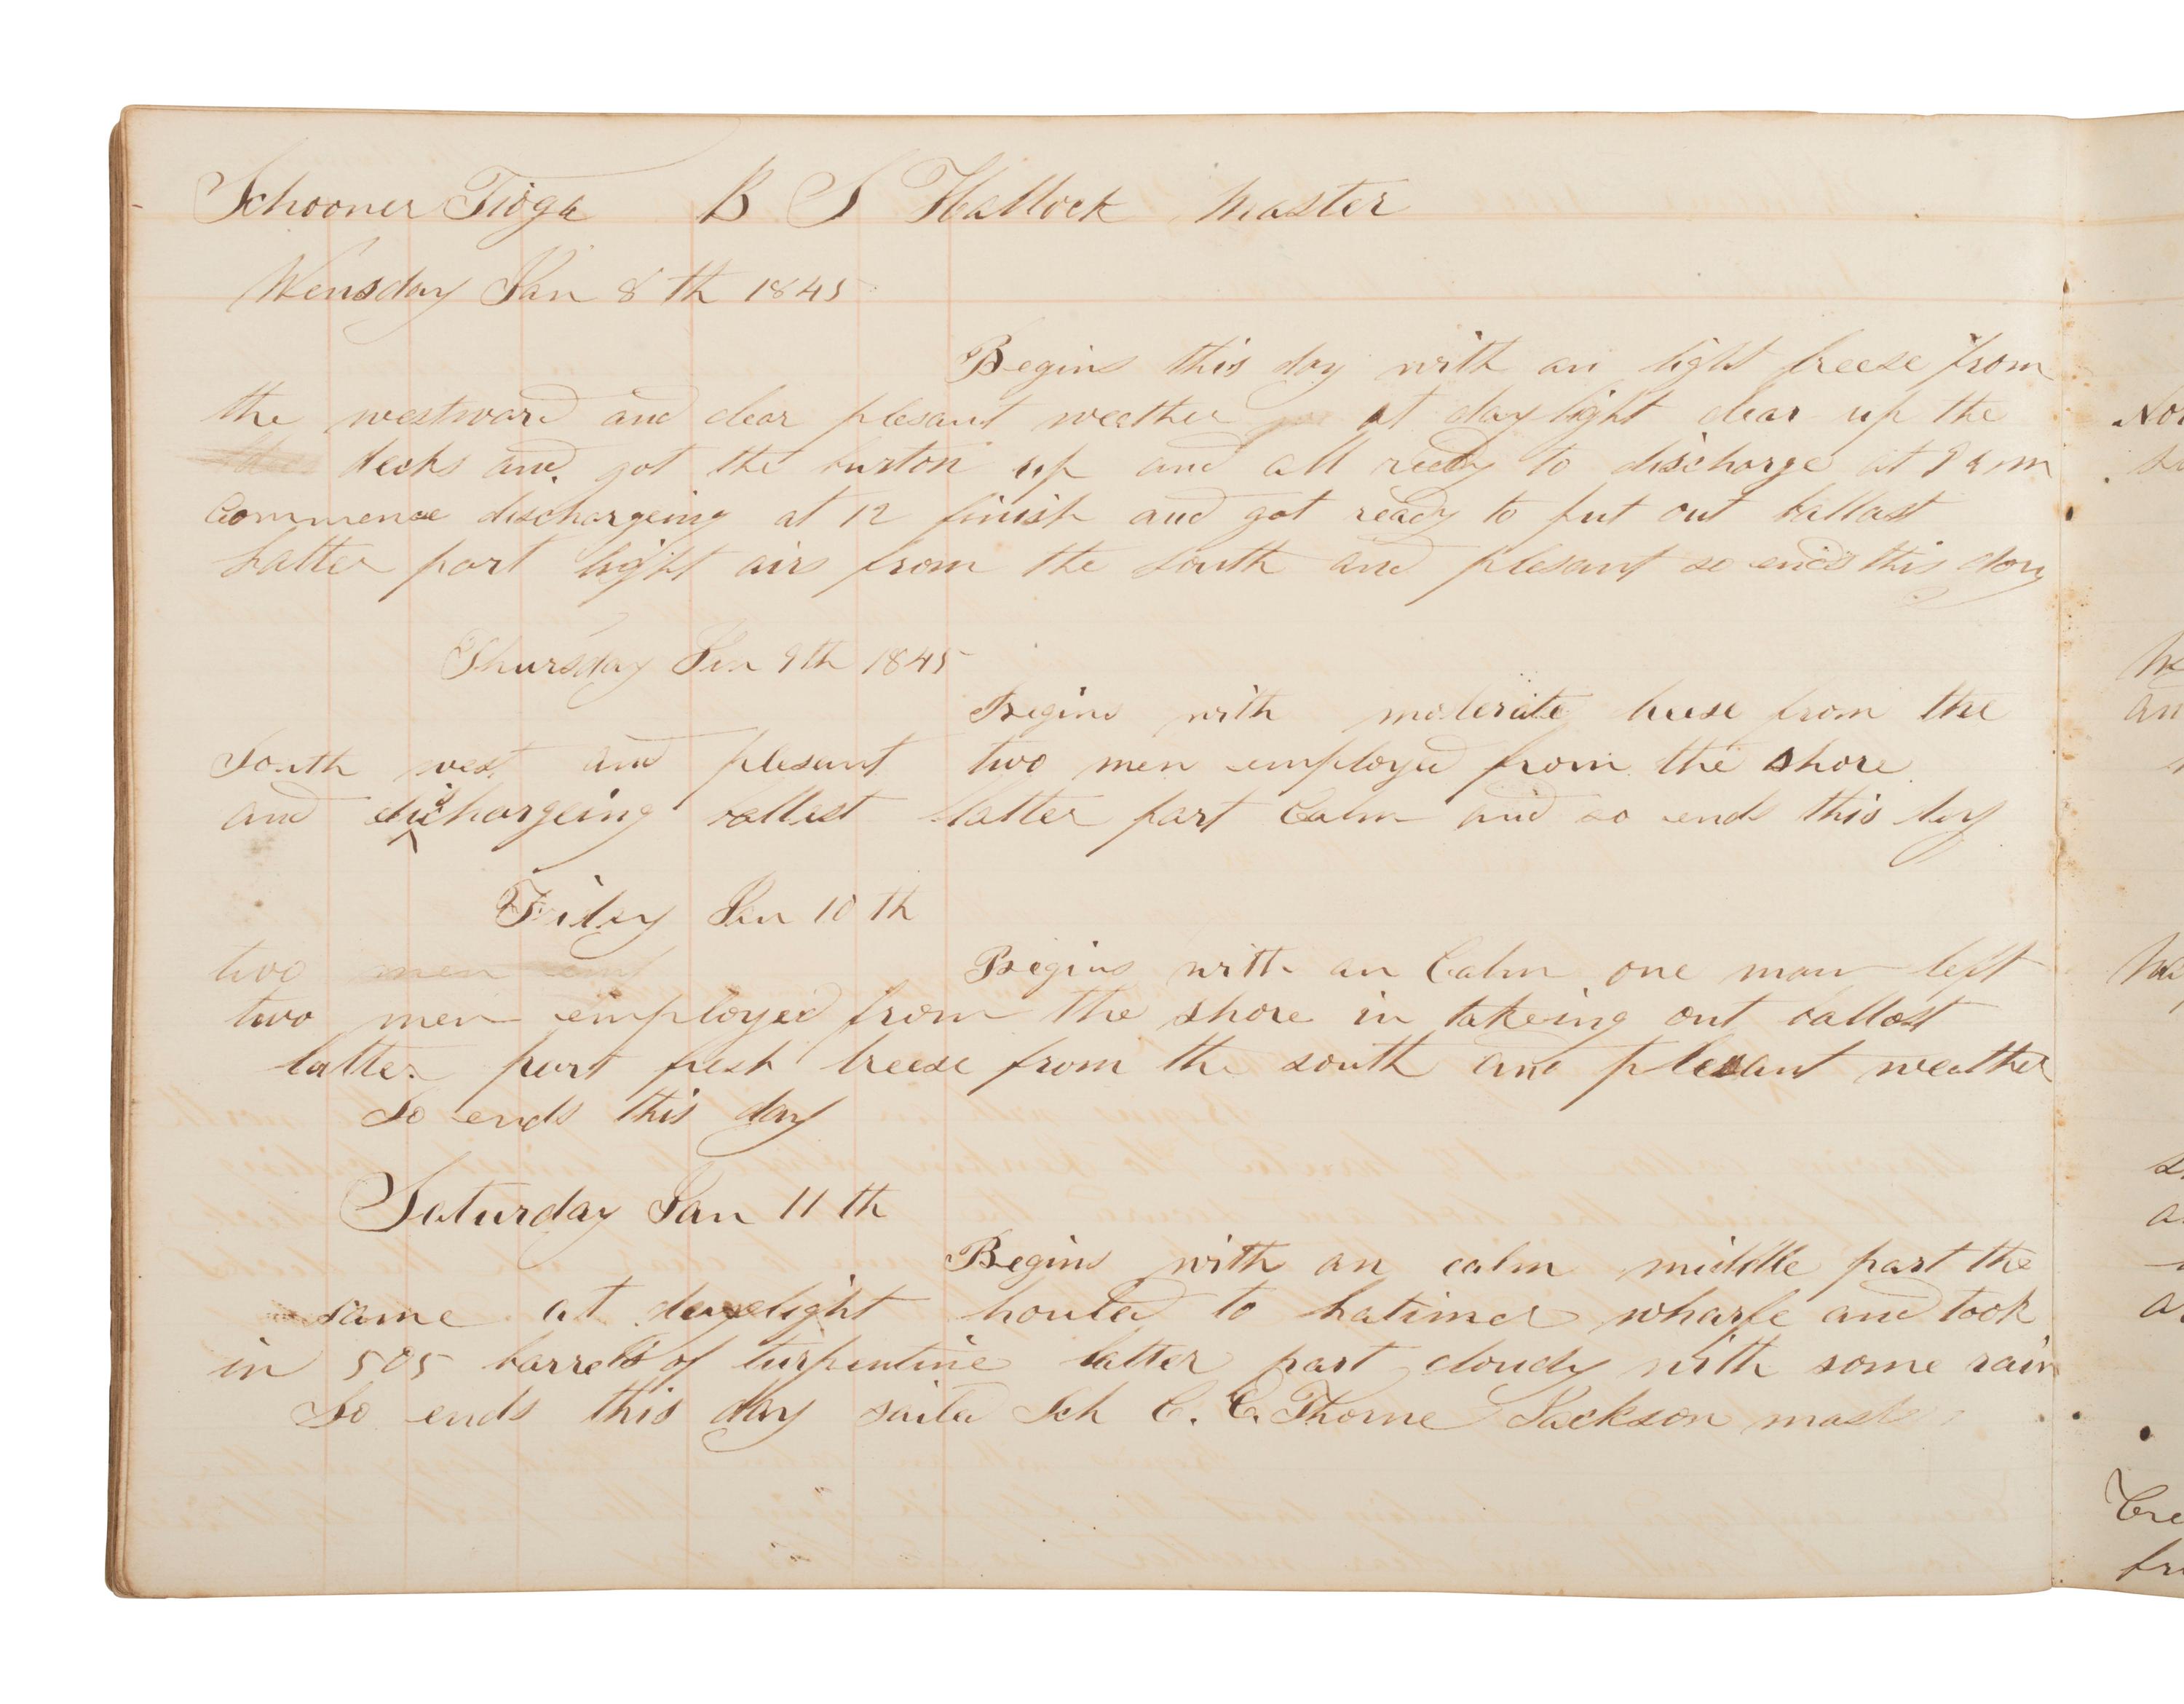 Schooner Tioga B S Hallock Master
Wensday Jan 8th 1845
Begins this day with an light breeze from
the westward and clear plesant weather at day light clear up the
decks and got the burton up and all ready to discharge at 9 am
Commence dischargeing at 12 finish and got ready to put out ballast
Latter part light airs from the South and plesant so ends this day
Thursday Jan 9th 1845
Begins with moderate breese from the
South west and plesant two men employed from the shore
and dischargeing ballast latter part Calm and so ends this day
Friday Jan 10th
two men Begins with an Calm one man left
two men employed from the shore in takeing out ballast
latter part fresh breeze from the south and plesant weather
So ends this day
Saturday Jan 11th
Begins with an calm middle part the
same at daylight houled to Latimer wharfe and took
in 505 barrels of turpentine latter part cloudy with some rain
So ends this day Sch C. C. Thorne Jackson
Nor